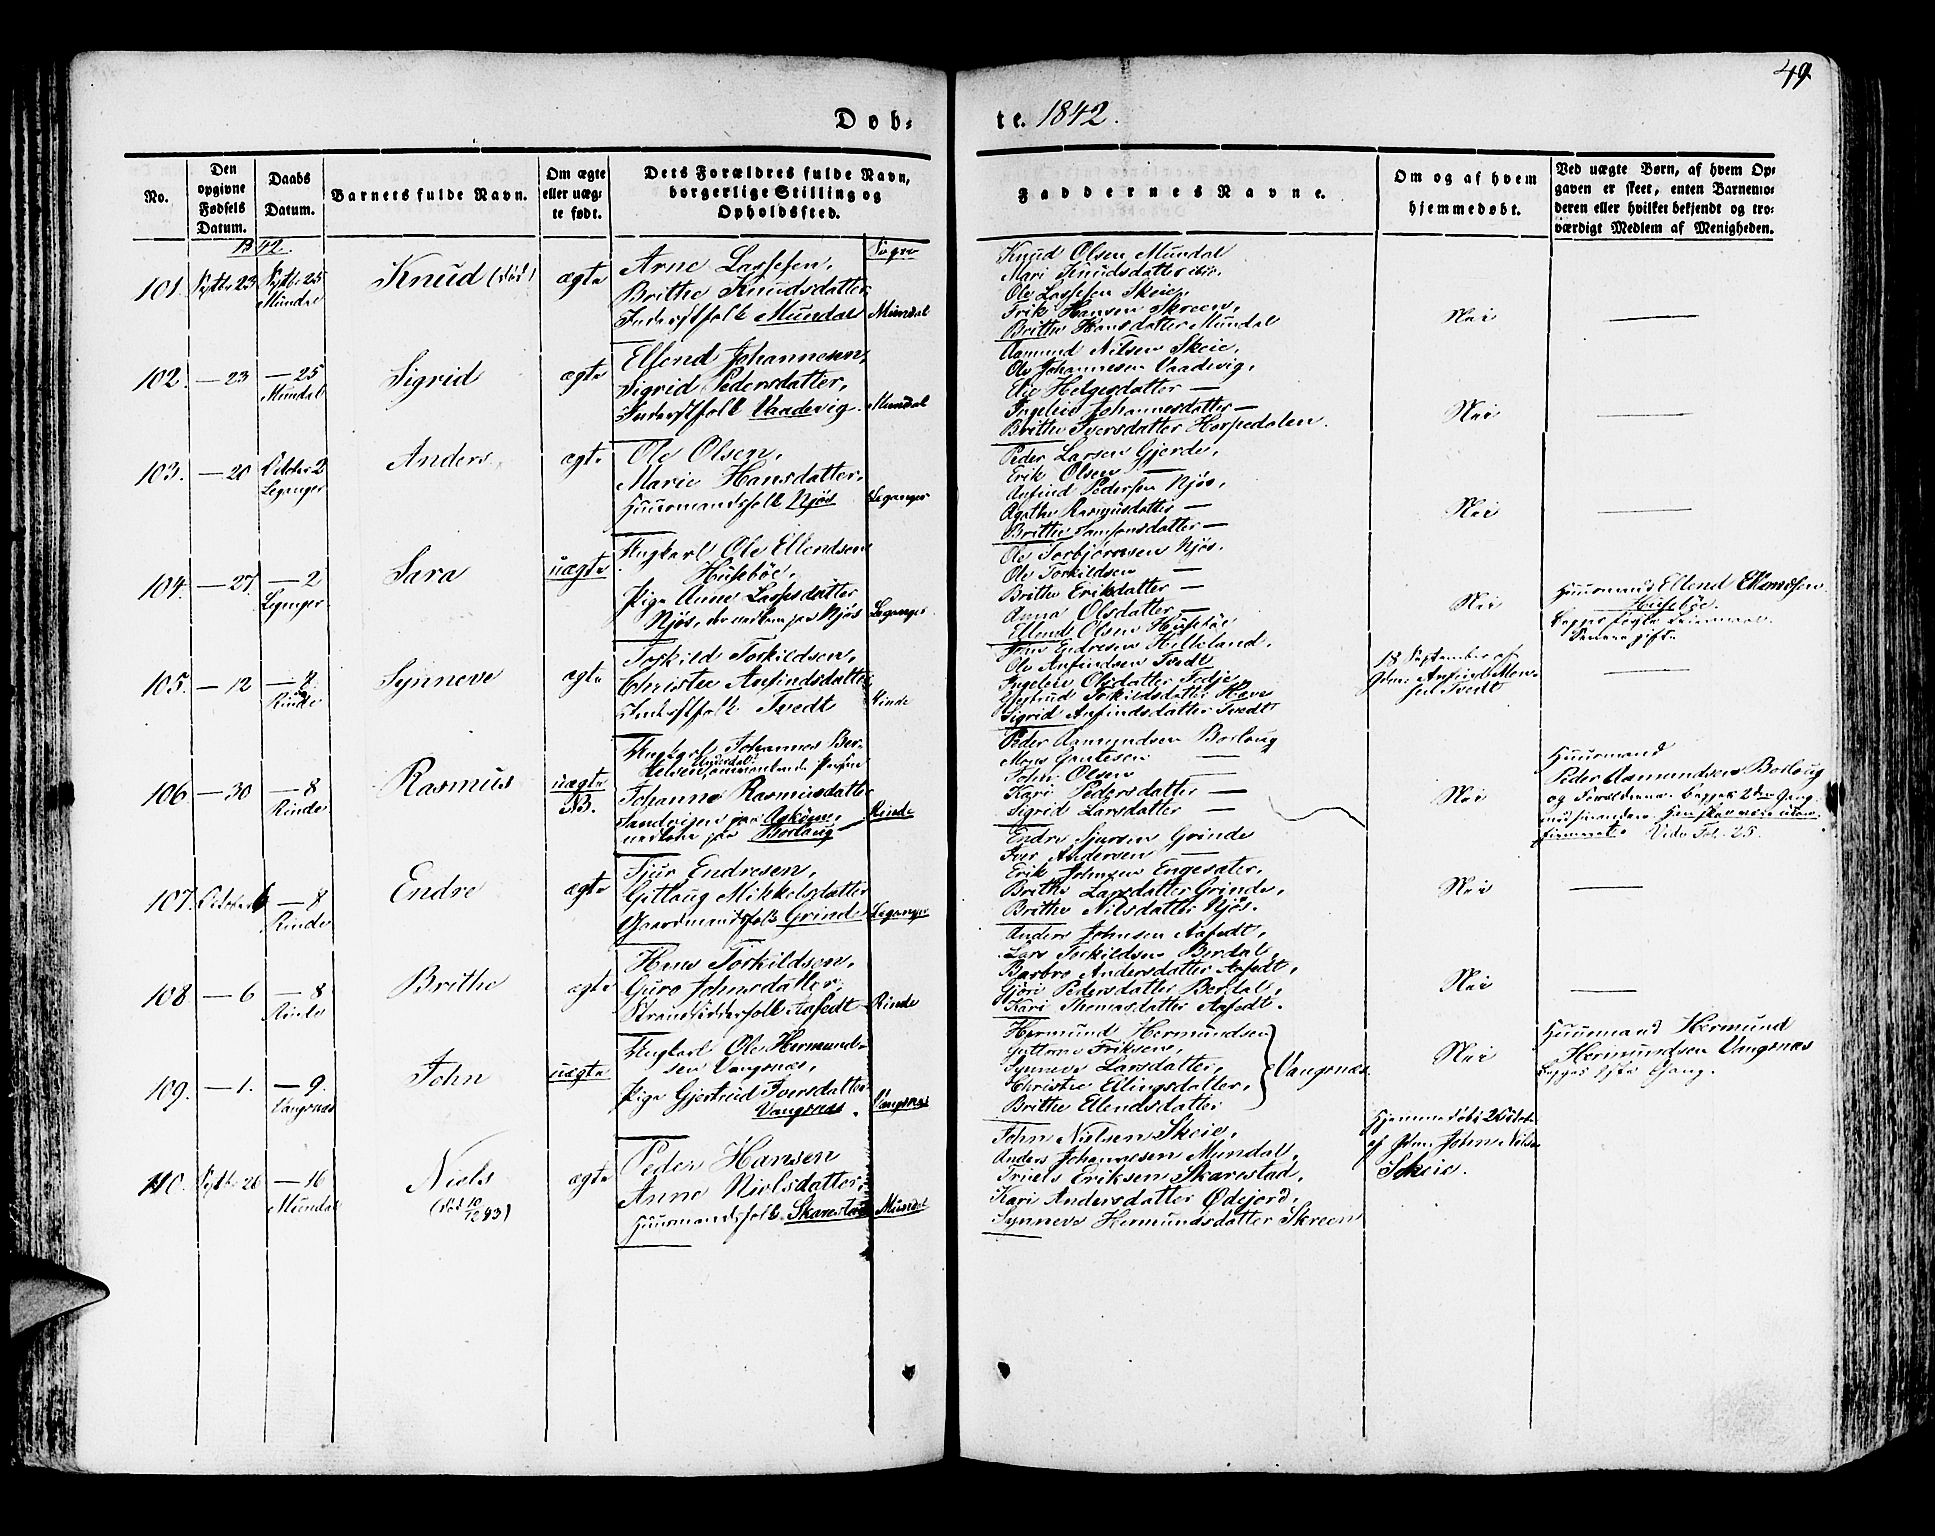 49
Døb-
te. 1842.
No.
Den opgivne Fødsels Datum.
Daabs Datum.
Barnets fulde Navn.
Om ægte eller uægte født.
Dets Forældres fulde Navn, borgerlige Stilling og Opholdssted.
Faddernes Navne.
Om og af hvem hjemmedøbt.
Ved uægte Børn, af hvem Opgaven er skeet, enten Barnemoderen eller hvilket bekjendt og troværdigt Medlem af Menigheden.
1842.
Sogne
101. Septbr 23 Septbr 25 Mundal
Knud (død)
ægte
Arne Lassesen,
Brithe Knudsdatter,
Inderstfolk Mundal
Mundal
Knud Olsen Mundal
Mari Knudsdatter ibid.
Ole Lassesen Skeie,
Erik Hansen Skreen,
Brithe Hansdatter Mundal
Nei
102. — 23 — 25 Mundal
Sigrid
ægte
Ellend Johannesen,
Sigrid Pedersdatter,
Inderstfolk Vaadevig.
Mundal
Aamund Nilsen Skeie,
Ole Johannesen Vaadevig,
Elie Helgesdatter —
Ingeleiv Johannesdatter —
Brithe Iversdatter Horpedalen.
Nei
103. — 20 October 2 Leganger
Anders
ægte
Ole Olsen,
Marie Hansdatter,
Huusmandsfolk Njøs
Leganger
Peder Larsen Gjerde,
Erik Olsen —
Anfind Pedersen Njøs,
Agathe Rasmusdatter —
Brithe Samsonsdatter —
Nei
104. — 27 — 2 Leganger
Sara
uægte
Ungkarl Ole Ellendsen
Husebøe,
Pige Anne Lassesdatter
Njøs,
Leganger
Ole Torbjørnsen Njøs.
Ole Torkildsen —
Brithe Eriksdatter —
Anna Olsdatter —
Ellend Olsen Husebøe
Nei
Huusmand Ellend Ellendsen
Husebøe.
105. — 12 — 2. Rinde
Synneve
ægte
Torkild Torkildsen,
Christie Anfindsdatter
Inderstfolk Tvedt
Rinde
Jon Endresen Hilleland,
Ole Anfindsen Tvedt
Ingeleiv Olsdatter Fedje
Gjertrud Torkildsdatter Hove
Sigrid Anfindsdatter Tvedt
18 September af
Gdm: Anfind Mon-
sen Tvedt
106 — 30 — 8 Rinde
Rasmus
uægte
NB.
Ungkarl Johannes Ber-
Johanne Rasmusdatter
Rinde
Peder Aamundsen Borlaug
Mons Gautesen —
John Olsen —
Kari Pedersdatter —
Sigrid Larsdatter —
Nei
Huusmand
Peder Aamundsen Borlaug
Vide Fol. 25.
107. October 6 — 8 Rinde
Endre
ægte
Sjur Endresen,
Gitlaug Mikkelsdatter
Gaardmandsfolk Grinde
Leganger
Endre Sjursen Grinde
Iver Andersen —
Erik Johnsen Engesæter,
Brithe Larsdatter Grinde,
Brithe Nilsdatter Njøs.
Nei
108 — 6 — 8 Rinde
Brithe
ægte
Hans Torkildsen,
Guro Johnsdatter,
Strandsidderfolk Aafedt
Rinde
Anders Johnsen Aafedt,
Lars Torkildsen Berdal,
Barbro Andersdatter Aafedt,
Gjøri Pedersdatter Berdal,
Kari Thomasdatter Aafedt.
Nei
109. — 1. — 9. Vangsnæs
John
uægte
Ungkarl Ole Hermund-
sen Vangsnæs,
Pige Gjertrud Iversdatter
Vangsnæs.
Vangsnæs
Hermund Hermundsen
Guttorm Eriksen,
Synneve Larsdatter,
Christie Ellingsdatter,
Brithe Ellendsdatter
Vangsnæs.
Nei
Huusmand Hermund
Hermundsen Vangsnæs
110. Septbr 26 — 16 Mundal
Niels
ægte
Peder Hansen
Anne Nielsdatter,
Huusmandsfolk Skarestad
Mundal
John Nielsen Skeie,
Anders Johannesen Mundal,
Truels Eriksen Skarestad,
Kari Andersdatter Ødejord,
Synneve Hermundsdatter Skreen
Hjemmedøbt
af Gdm. John Nilsen
Skeie.